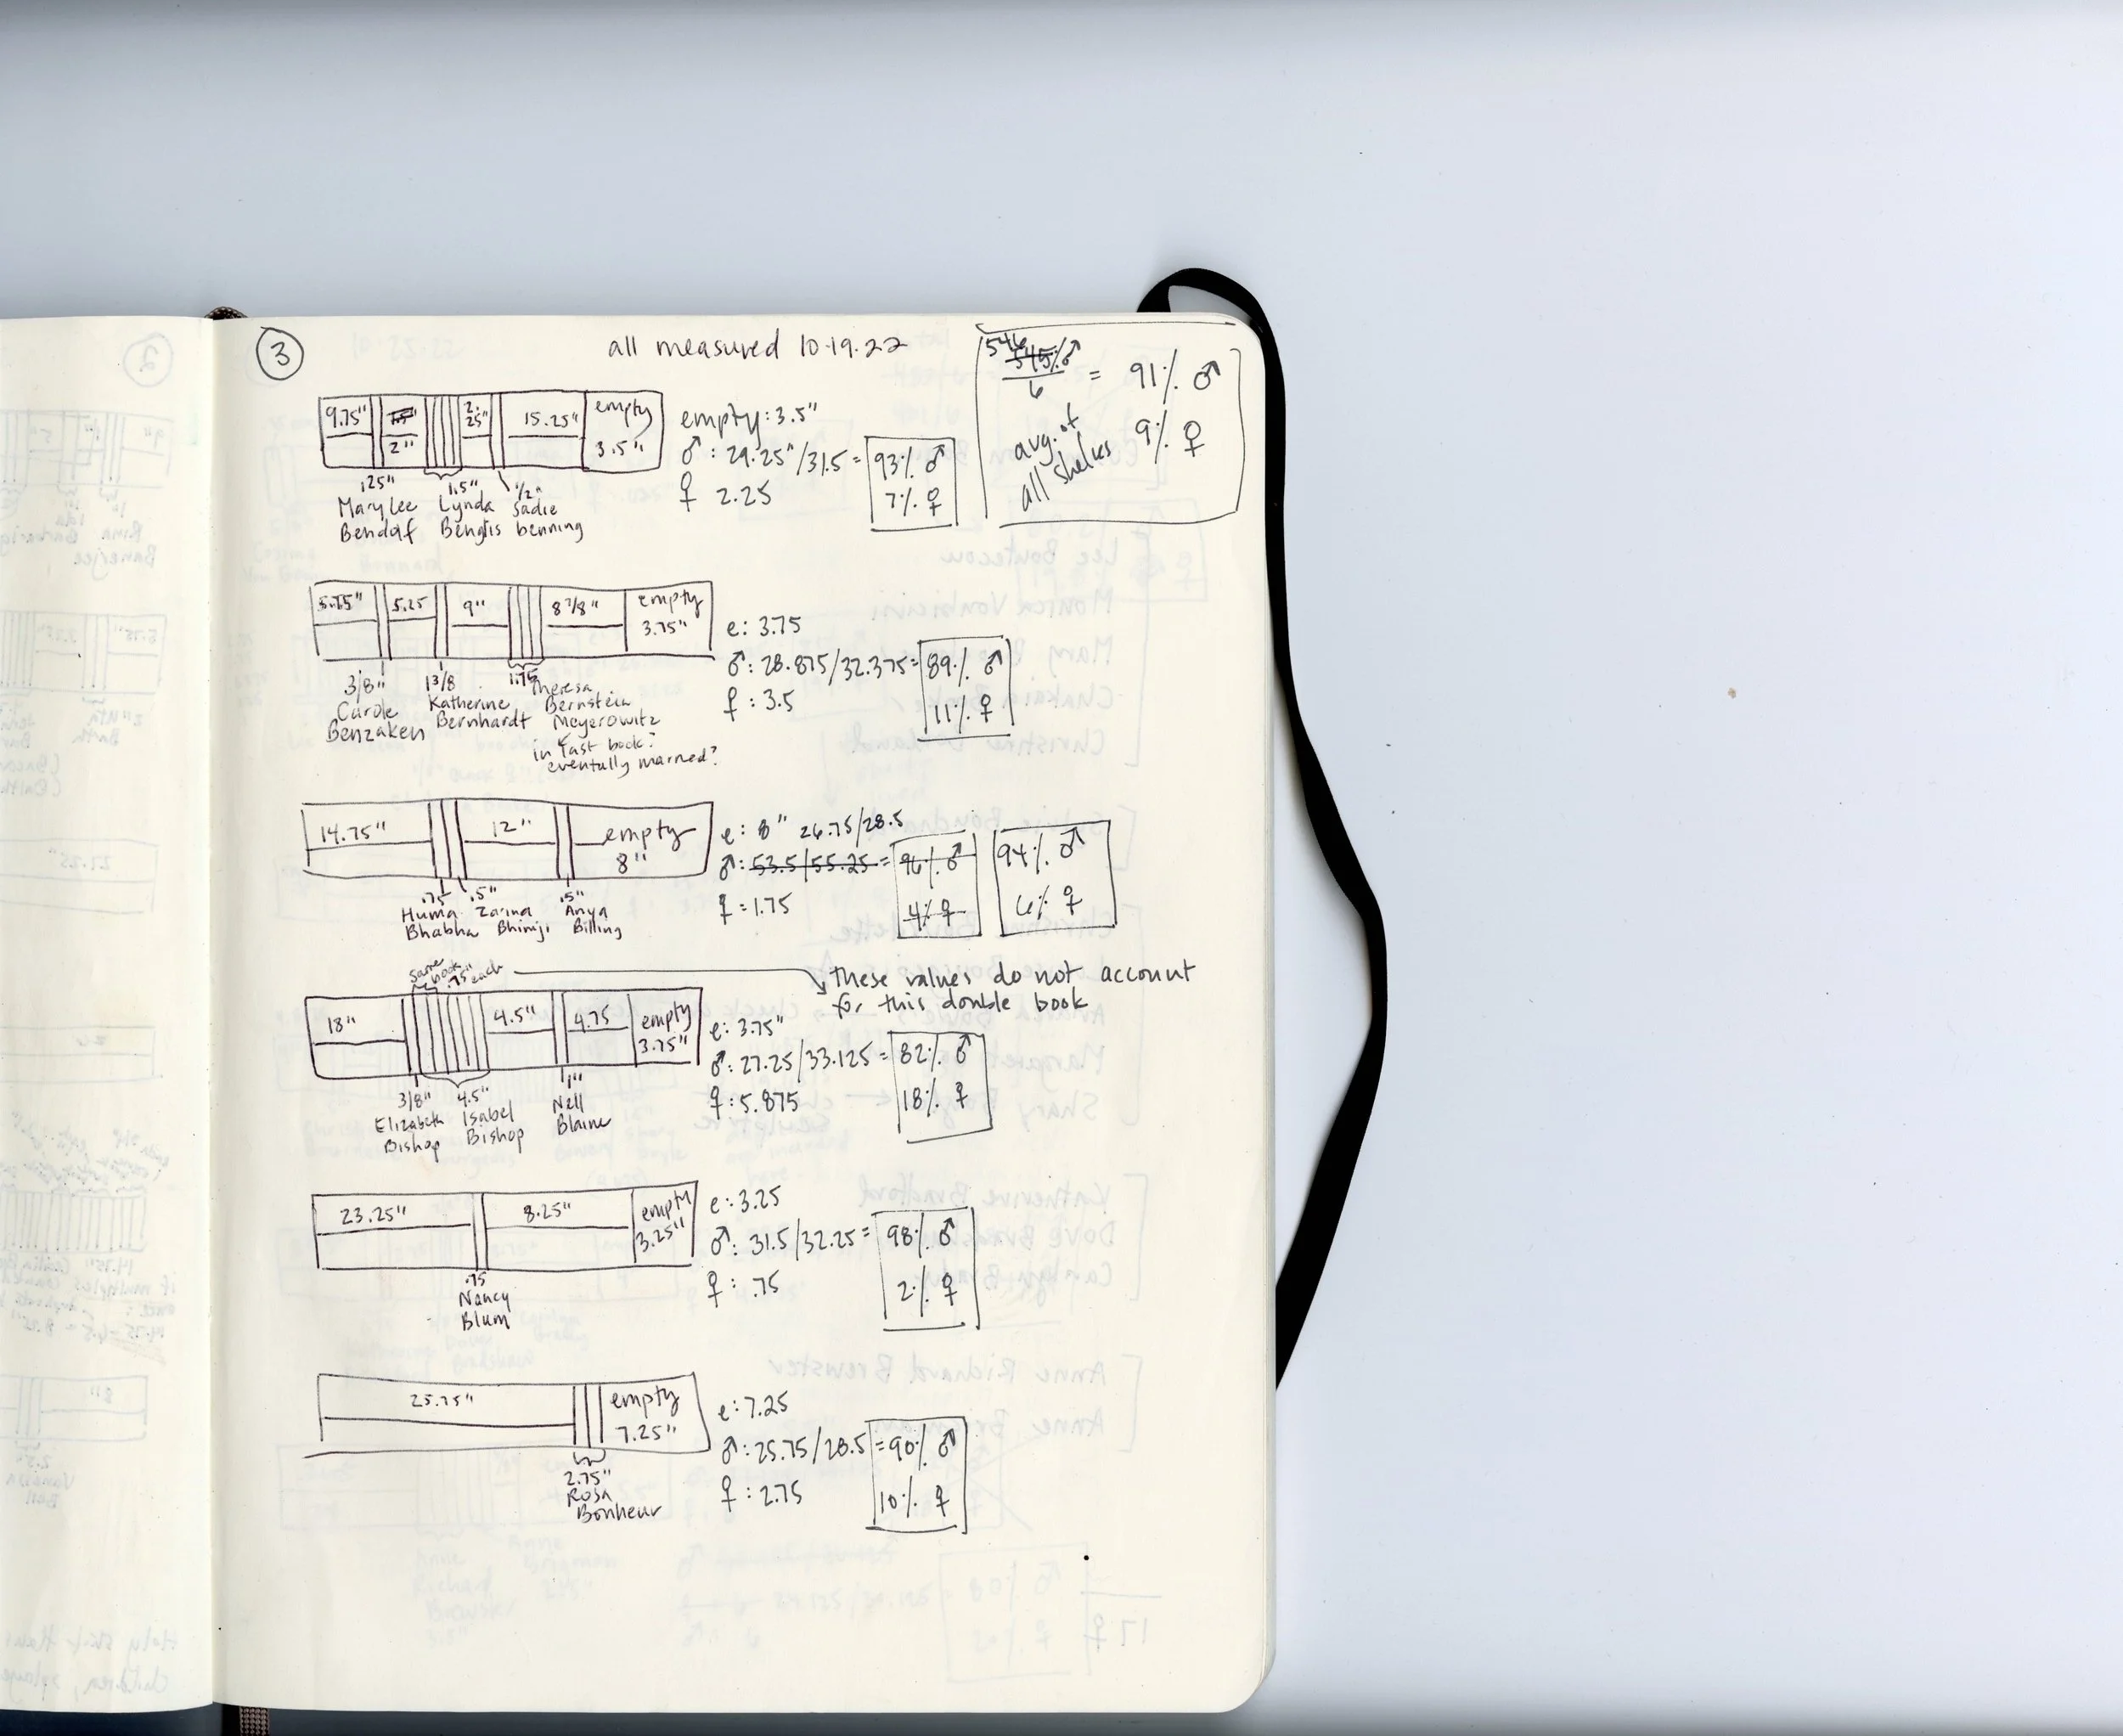 3
all measured 10.19.22
546
545% ♂
6
= 91% ♂
9% ♀
avg. of
all shelves
9.75"
2"
2.25"
15.25"
empty
3.5"
.25"
Mary Lee
Bendolf
1.5"
Lynda
Benglis
1/2"
Sadie
benning
empty: 3.5"
♂: 29.25"/31.5 =
♀ 2.25
93% ♂
7% ♀
5.75"
5.25
9"
8 7/8"
empty
3.75"
3/8"
Carole
Benzaken
1 3/8
Katherine
Bernhardt
1.75
Theresa
Bernstein
Meyerowitz
in last book?
eventually married?
e: 3.75
♂: 28.875/32.375 =
♀: 3.5
89% ♂
11% ♀
14.75"
12"
empty
8"
.75
Huma
Bhabha
.5"
Zarina
Bhimji
.5"
Anya
Billing
e: 8" 26.75/28.5
♂: 53.5/55.25 =
♀ = 1.75
96% ♂
4% ♀
94% ♂
6% ♀
same
book
.75" each
these values do not account
for this double book
18"
4.5"
4.75
empty
3.75"
3/8"
Elizabeth
Bishop
4.5"
Isabel
Bishop
1"
Nell
Blaine
e: 3.75"
♂: 27.25/33.125 =
♀: 5.875
82% ♂
18% ♀
23.25"
8.25"
empty
3.25"
.75
Nancy
Blum
e: 3.25
♂: 31.5/32.25 =
♀: .75
98% ♂
2% ♀
25.75"
empty
7.25"
2.75"
Rosa
Bonheur
e: 7.25
♂: 25.75/28.5 =
♀: 2.75
90% ♂
10% ♀